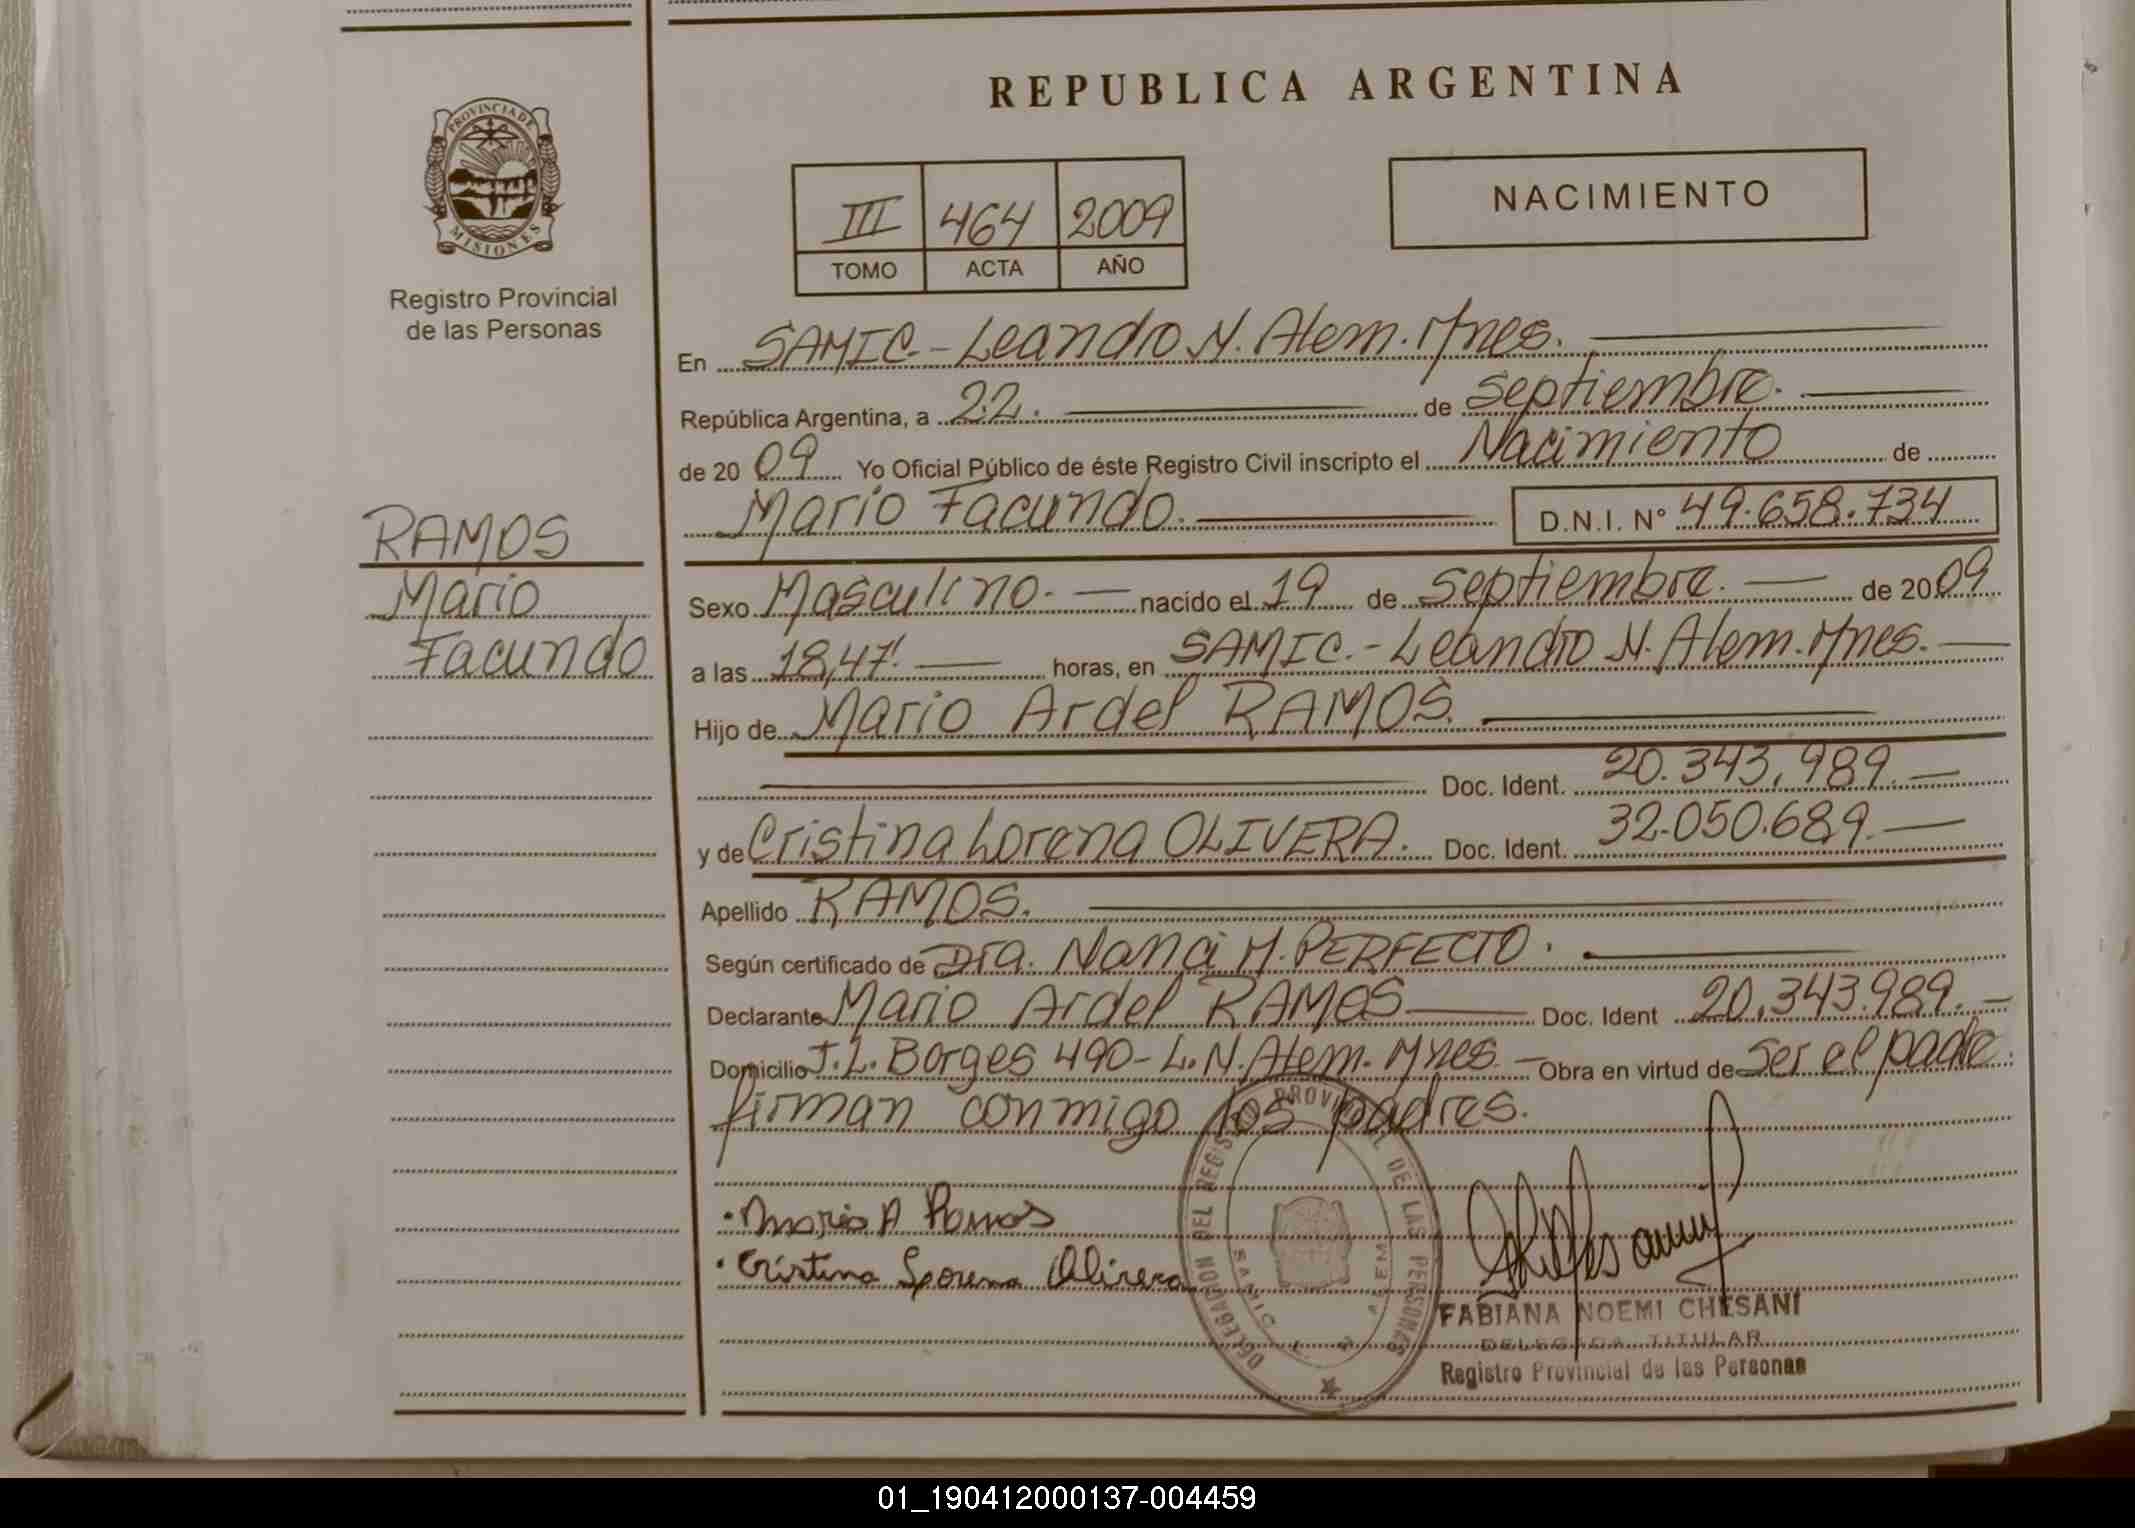 REPUBLICA ARGENTINA
PROVINCIA DE
MISIONES
Registro Provincial
de las Personas
III 464 2009
TOMO ACTA AÑO
NACIMIENTO
En SAMIC.- Leandro N. Alem. Mnes.
República Argentina, a 22. de septiembre.
de 2009 Yo Oficial Público de éste Registro Civil inscripto el Nacimiento de
Mario Facundo. D.N.I. Nº 49.658.734
RAMOS
Mario
Facundo
Sexo Masculino. nacido el 19 de septiembre. de 2009
a las 18,47. horas, en SAMIC.- Leandro N. Alem. Mnes.
Hijo de Mario Ardel RAMOS.
Doc. Ident. 20.343.989.
y de Cristina Lorena OLIVERA. Doc. Ident. 32.050.689.
Apellido RAMOS.
Según certificado de Dra. Nanci M. PERFECTO.
Declarante Mario Ardel RAMOS Doc. Ident 20.343.989.
Domicilio J.L. Borges 490- L.N. Alem. Mnes Obra en virtud de ser el padre.
firman conmigo los padres.
Mario A Ramos
Cristina Lorena Olivera
DELEGACION DEL REGISTRO PROVINCIAL DE LAS PERSONAS
SAMIC L. N. ALEM
FABIANA NOEMI CHESANI
DELEGADA TITULAR
Registro Provincial de las Personas
01_190412000137-004459